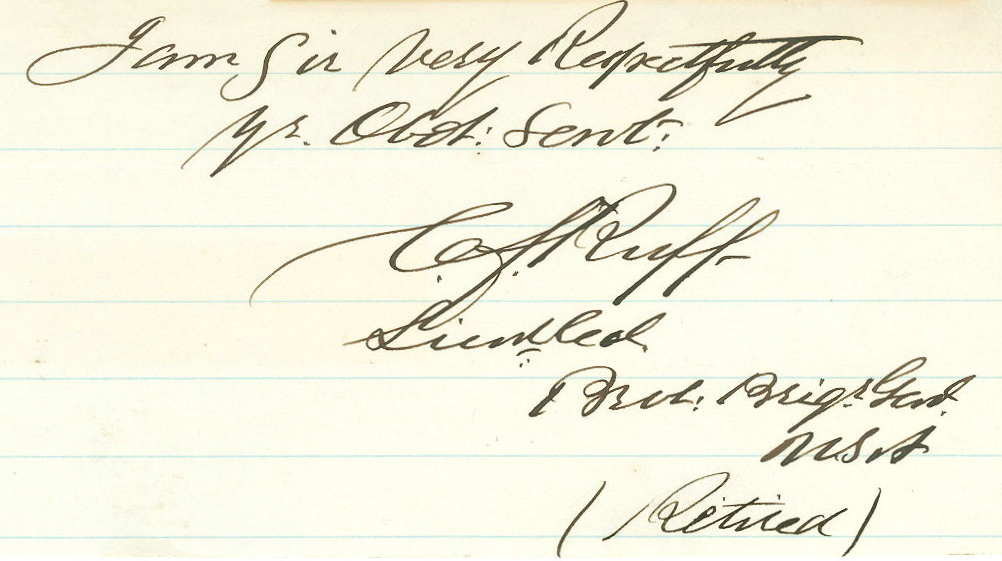 I am Sir Very Respectfully
Yr. Obdt: Servt:
C. F. Ruff
Lieut Col.
Brvt: Brigr Genl.
U.S.A
(Retired)